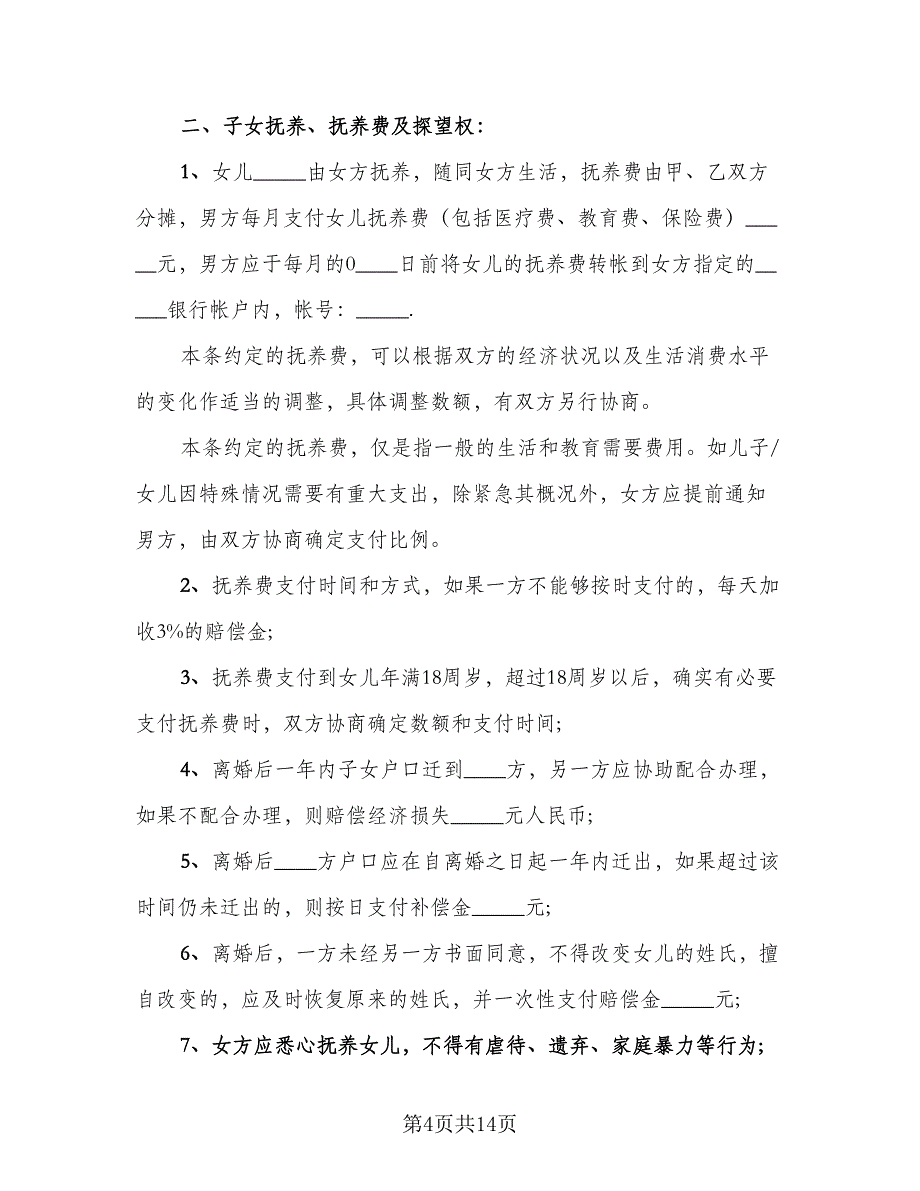 二、子女抚养、抚养费及探望权：
1、女儿_____由女方抚养，随同女方生活，抚养费由甲、乙双方
分摊，男方每月支付女儿抚养费（包括医疗费、教育费、保险费）___
__元，男方应于每月的0____日前将女儿的抚养费转帐到女方指定的__
___银行帐户内，帐号：_____.
本条约定的抚养费，可以根据双方的经济状况以及生活消费水平
的变化作适当的调整，具体调整数额，有双方另行协商。
本条约定的抚养费，仅是指一般的生活和教育需要费用。如儿子/
女儿因特殊情况需要有重大支出，除紧急其概况外，女方应提前通知
男方，由双方协商确定支付比例。
2、抚养费支付时间和方式，如果一方不能够按时支付的，每天加
收3%的赔偿金;
3、抚养费支付到女儿年满18周岁，超过18周岁以后，确实有必要
支付抚养费时，双方协商确定数额和支付时间;
4、离婚后一年内子女户口迁到____方，另一方应协助配合办理，
如果不配合办理，则赔偿经济损失_____元人民币;
5、离婚后____方户口应在自离婚之日起一年内迁出，如果超过该
时间仍未迁出的，则按日支付补偿金_____元;
6、离婚后，一方未经另一方书面同意，不得改变女儿的姓氏，擅
自改变的，应及时恢复原来的姓氏，并一次性支付赔偿金_____元;
7、女方应悉心抚养女儿，不得有虐待、遗弃、家庭暴力等行为;
第4页共14页